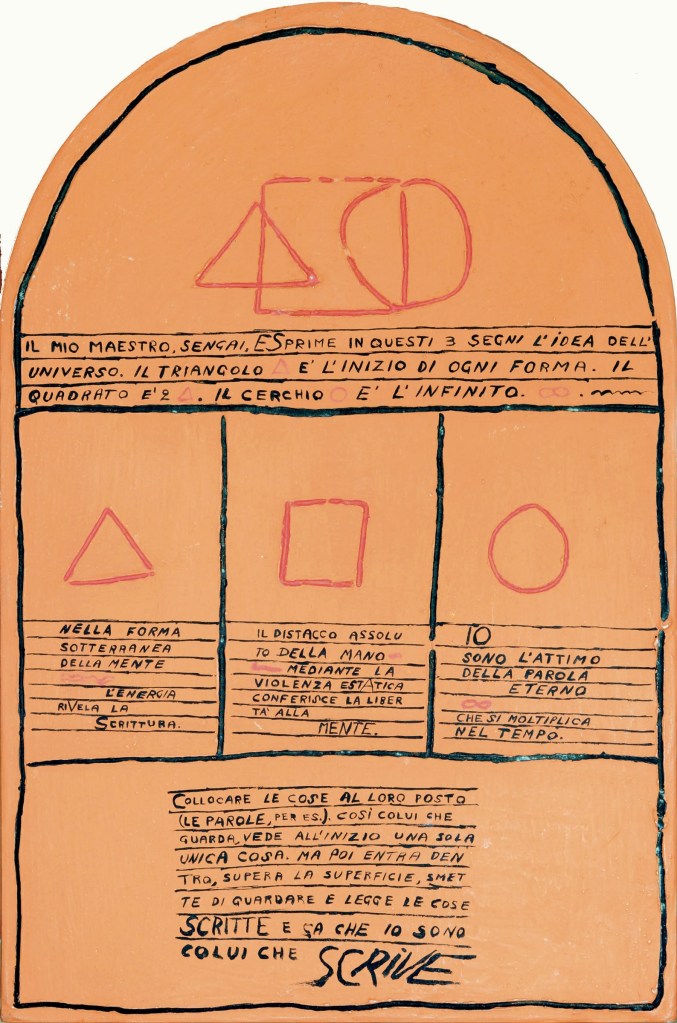 IL MIO MAESTRO, SENGAI, ESPRIME IN QUESTI 3 SEGNI L'IDEA DELL'
UNIVERSO. IL TRIANGOLO △ E' L'INIZIO DI OGNI FORMA. IL
QUADRATO E' 2 △. IL CERCHIO ○ E' L'INFINITO. ∞ .
NELLA FORMA
SOTTERRANEA
DELLA MENTE
L'ENERGIA
RIVELA LA
SCRITTURA.
IL DISTACCO ASSOLU
TO DELLA MANO
MEDIANTE LA
VIOLENZA ESTATICA
CONFERISCE LA LIBER
TA' ALLA
MENTE.
IO
SONO L'ATTIMO
DELLA PAROLA
ETERNO
∞
CHE SI MOLTIPLICA
NEL TEMPO.
COLLOCARE LE COSE AL LORO POSTO
(LE PAROLE, PER ES.). COSÌ COLUI CHE
GUARDA, VEDE ALL'INIZIO UNA SOLA
UNICA COSA. MA POI ENTRA DEN
TRO, SUPERA LA SUPERFICIE, SMET
TE DI GUARDARE E LEGGE LE COSE
SCRITTE E ÇA CHE IO SONO
COLUI CHE SCRIVE